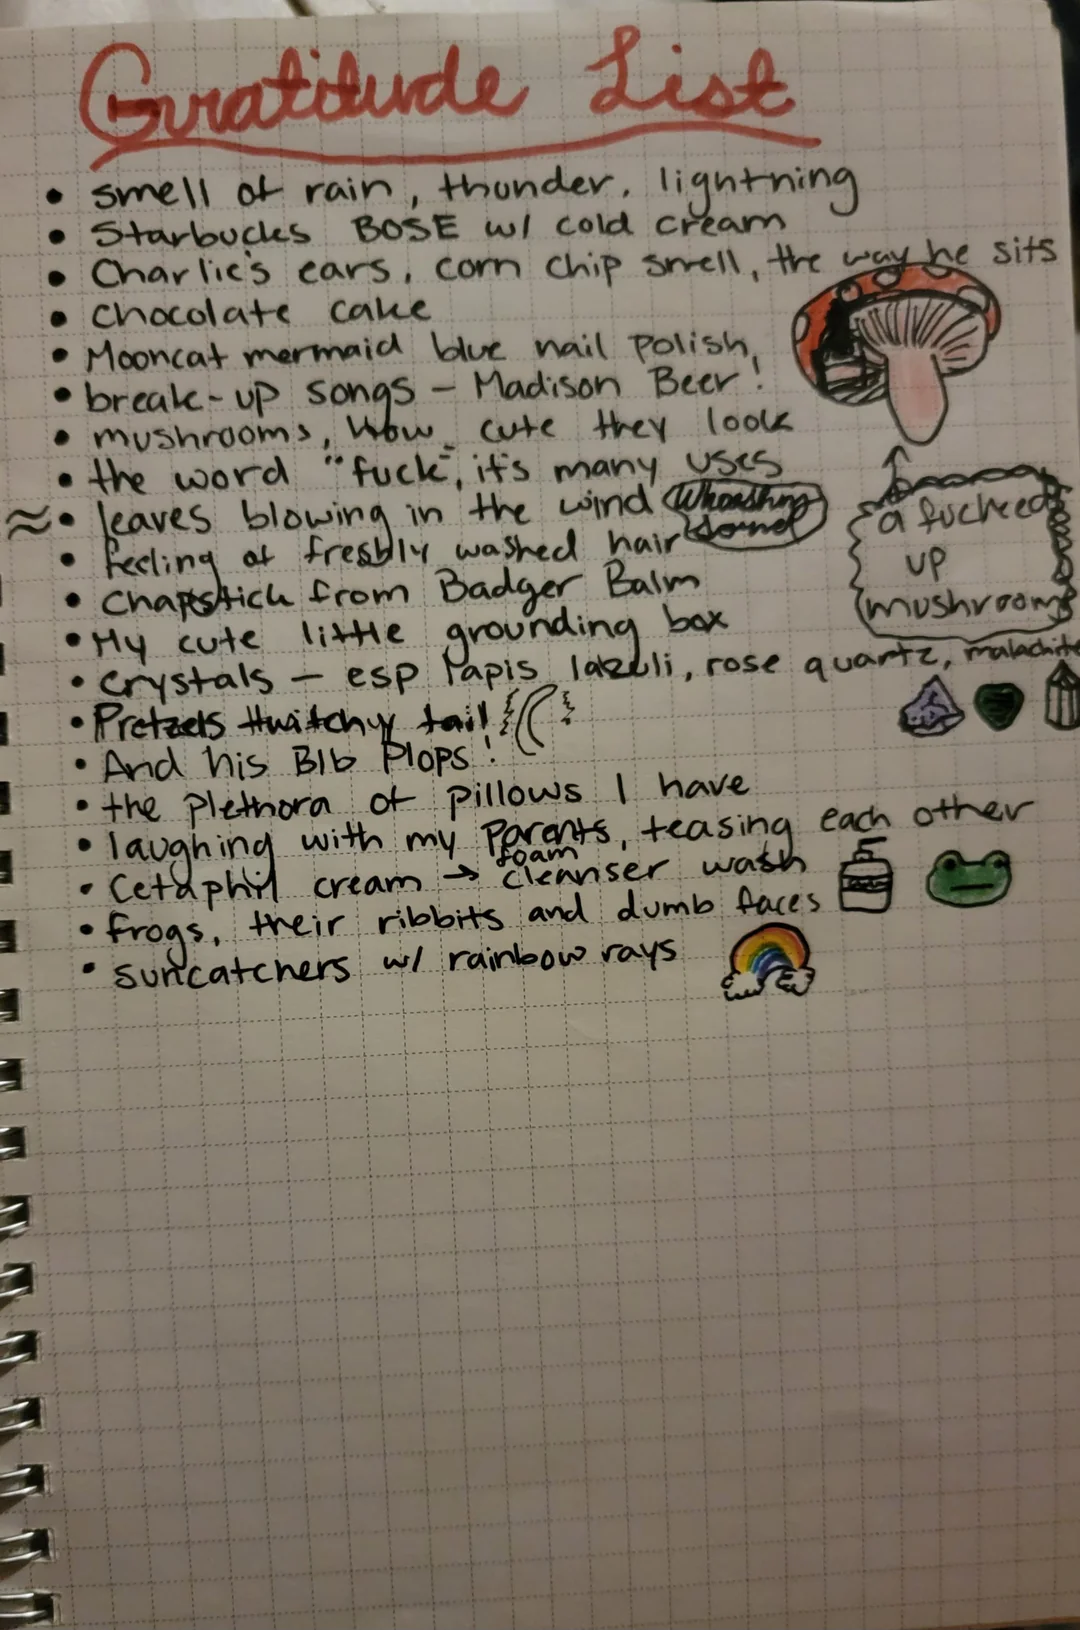 Gratitude List
• smell of rain, thunder, lightning
• Starbucks BOSE w/ cold cream
• Charlie's ears, corn chip smell, the way he sits
• Chocolate cake
• Mooncat mermaid blue nail polish,
• break-up songs – Madison Beer!
• mushrooms, how cute they look
• the word "fuck", it's many uses
• leaves blowing in the wind Whooshing
• feeling of freshly washed hair
a fucked
up
mushroom
• Chapstick from Badger Balm
• My cute little grounding box
• Crystals – esp lapis lazuli, rose quartz, malachite
• Pretzels twitchy tail!
• And his Blb Plops!
• the plethora of pillows I have
• laughing with my parents, teasing each other
• Cetaphil cream → foam cleanser wash
• frogs, their ribbits and dumb faces
• suncatchers w/ rainbow rays